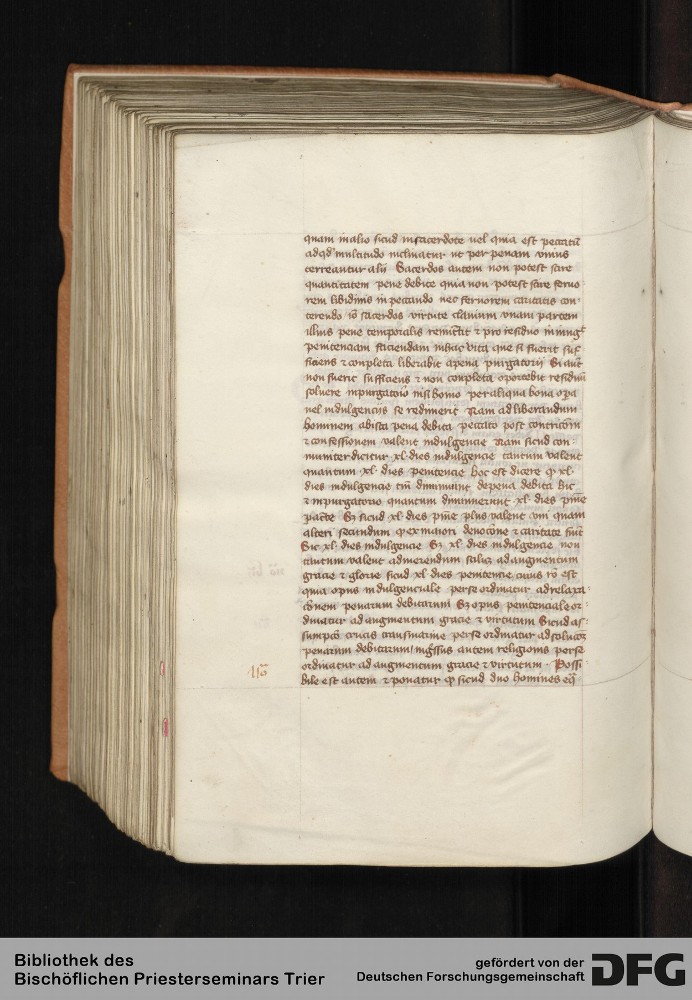 quam in alio sicud in sacerdote uel quia est peccatū
ad qd' multitudo inclinatur ut per penam unius
terreantur alij Sacerdos autem non potest scire
quantitatem pene debite quia non potest scire feruo
rem libidinis in peccando nec feruorem caritatis con
terendo iō sacerdos virtute clauium unam partem
illius pene temporalis remittit & pro residuo iniungt
penitenciam faciendam in hac vita que si fuerit suf
ficiens & conpleta liberabit a pena purgatorij Si aūt
non fuerit sufficiens & non conpleta oportebit residuū
soluere in purgatorio nisi homo per aliqua bona opa
uel indulgencijs se redimerit Nam ad liberandum
hominem ab ista pena debita peccato post contricōm
& confessionem valent indulgencie Nam sicud con
muniter dicitur xl dies indulgencie tantum valent
quantum xl dies penitencie hoc est dicere qp xl
dies indulgencie tm̄ diminuunt de pena debita hic
& in purgatorio quantum diminuerunt xl dies pnīe
Sz sicud xl dies pnīe plus valent vni quam
alteri secundum qp ex maiori deuocōne & caritate fiūt
Sic xl dies indulgencie Sz xl dies indulgencie non
tantum valent ad merendum scilicz ad augmentum
gracie & glorie sicud xl dies penitencie cuius rō est
quia opus indulgenciale per se ordinatur ad relaxa
cōnem penarum debitarum Sz opus penitenciale or
dinatur ad augmentum gracie & virtutum Sicud as
sumpcō crucis transmarine per se ordinatur ad solucōz
penarum debitarum ingssus autem religionis per se
ordinatur ad augmentum gracie & virtutum Possi
bile est autem & ponatur qp sicud duo homines eq̄
Bibliothek des
Bischöflichen Priesterseminars Trier
gefördert von der
Deutschen Forschungsgemeinschaft
DFG